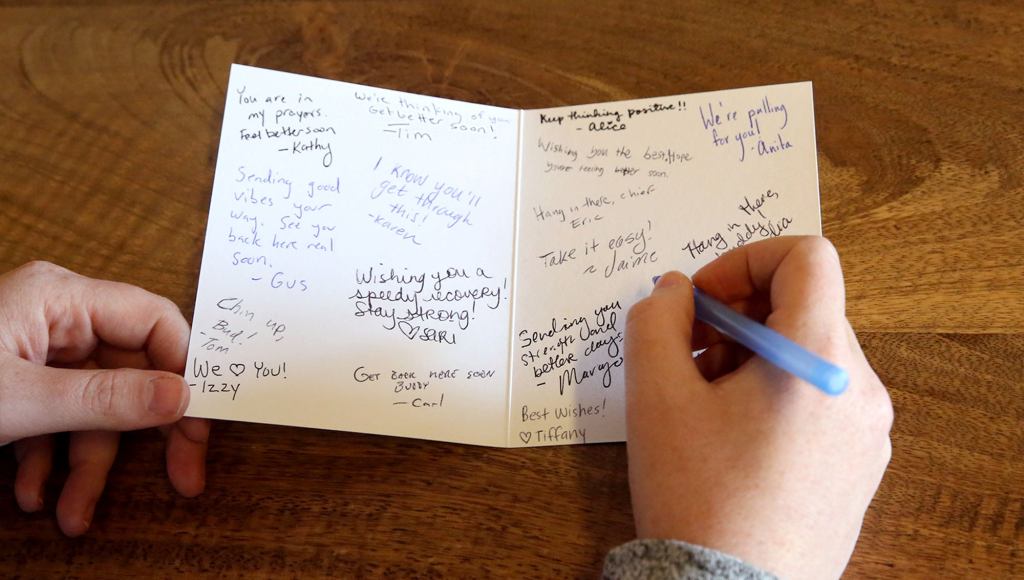 You are in
my prayers.
Feel better soon
- Kathy
We're thinking of you
Get better soon!
- Tim
Sending good
vibes your
way. See you
back here real
soon.
- Gus
I know you'll
get through
this!
- Karen
Chin up,
Bud!
- Tom
Wishing you a
speedy recovery!
Stay strong!
♡ Sari
We ♡ You!
- Izzy
GET BACK HERE SOON
BUDDY
- Carl
Keep thinking positive!!
- Alice
We're pulling
for you!
- Anita
Wishing you the best, Hope
you're feeling better soon.
Hang in there, chief
Eric
Take it easy!
~ Jaime
Hang in there,
Sending you
strength and
better days
Best Wishes!
♡ Tiffany